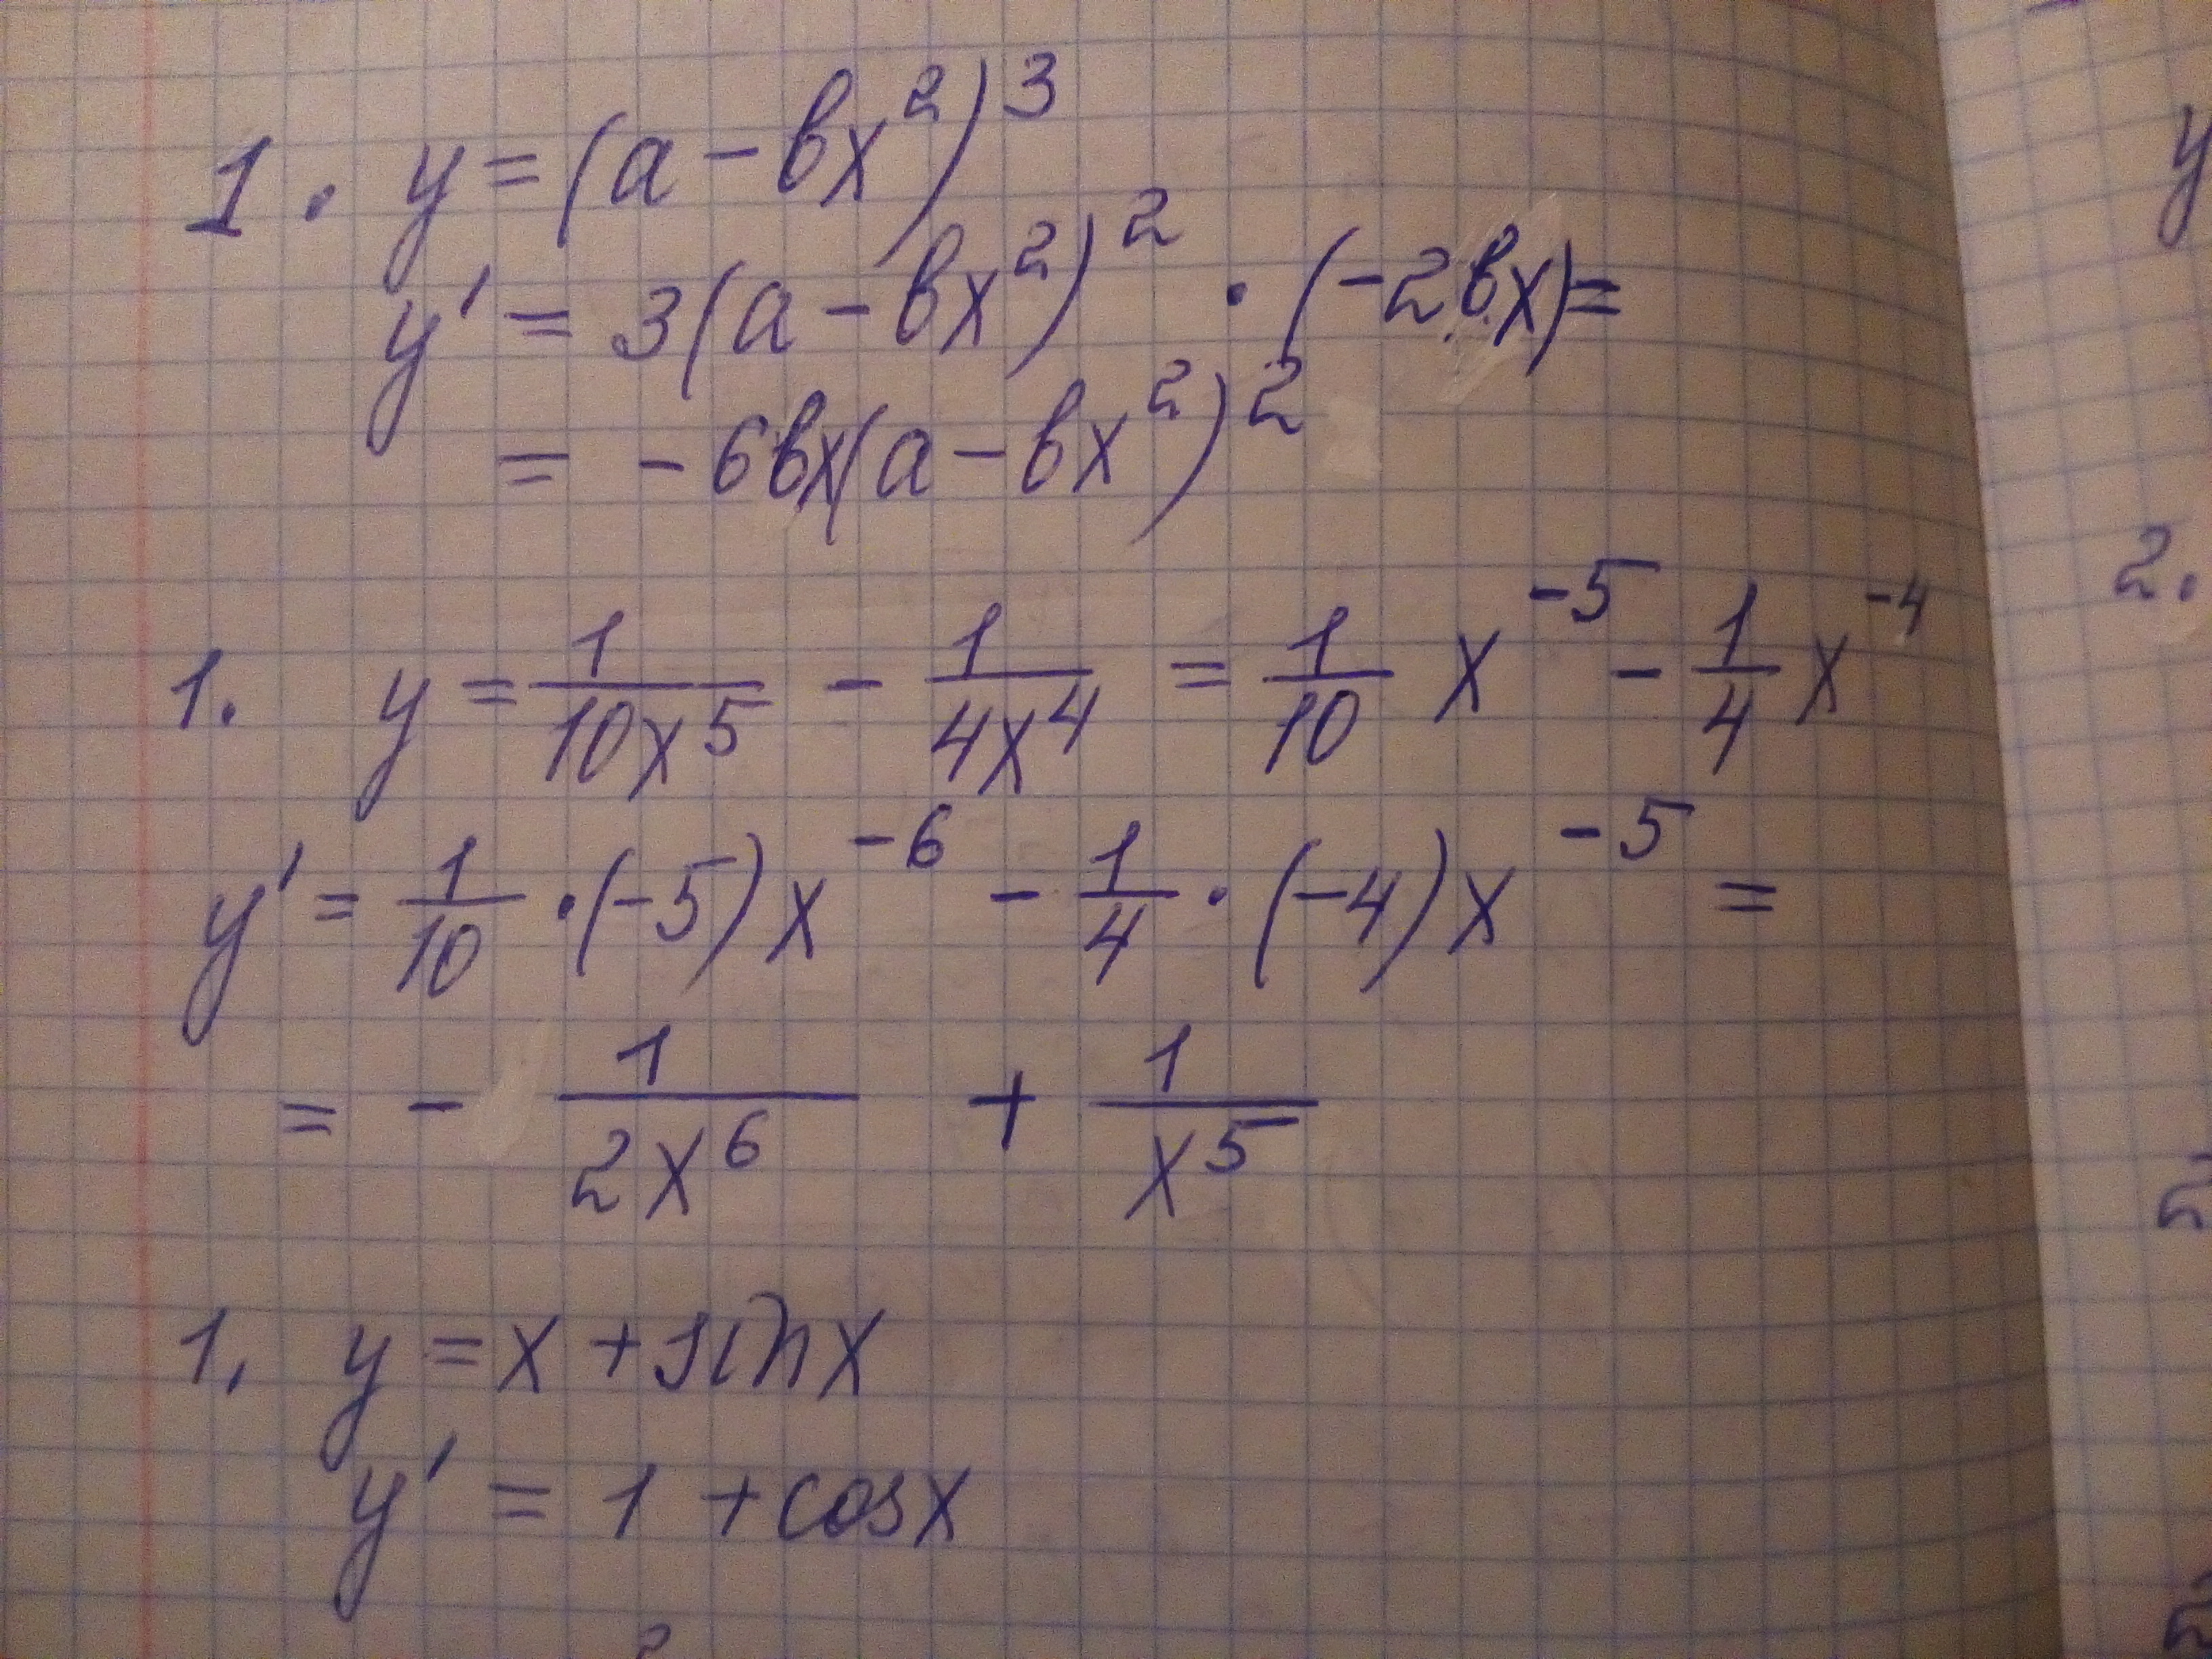 1. y = (a - bx²)³
y' = 3(a - bx²)² · (-2bx) =
= -6bx(a - bx²)²
1. y = 1/10x⁵ - 1/4x⁴ = 1/10 x⁻⁵ - 1/4 x⁻⁴
y' = 1/10 · (-5)x⁻⁶ - 1/4 · (-4)x⁻⁵ =
= - 1/2x⁶ + 1/x⁵
1. y = x + sin x
y' = 1 + cos x
y
2.